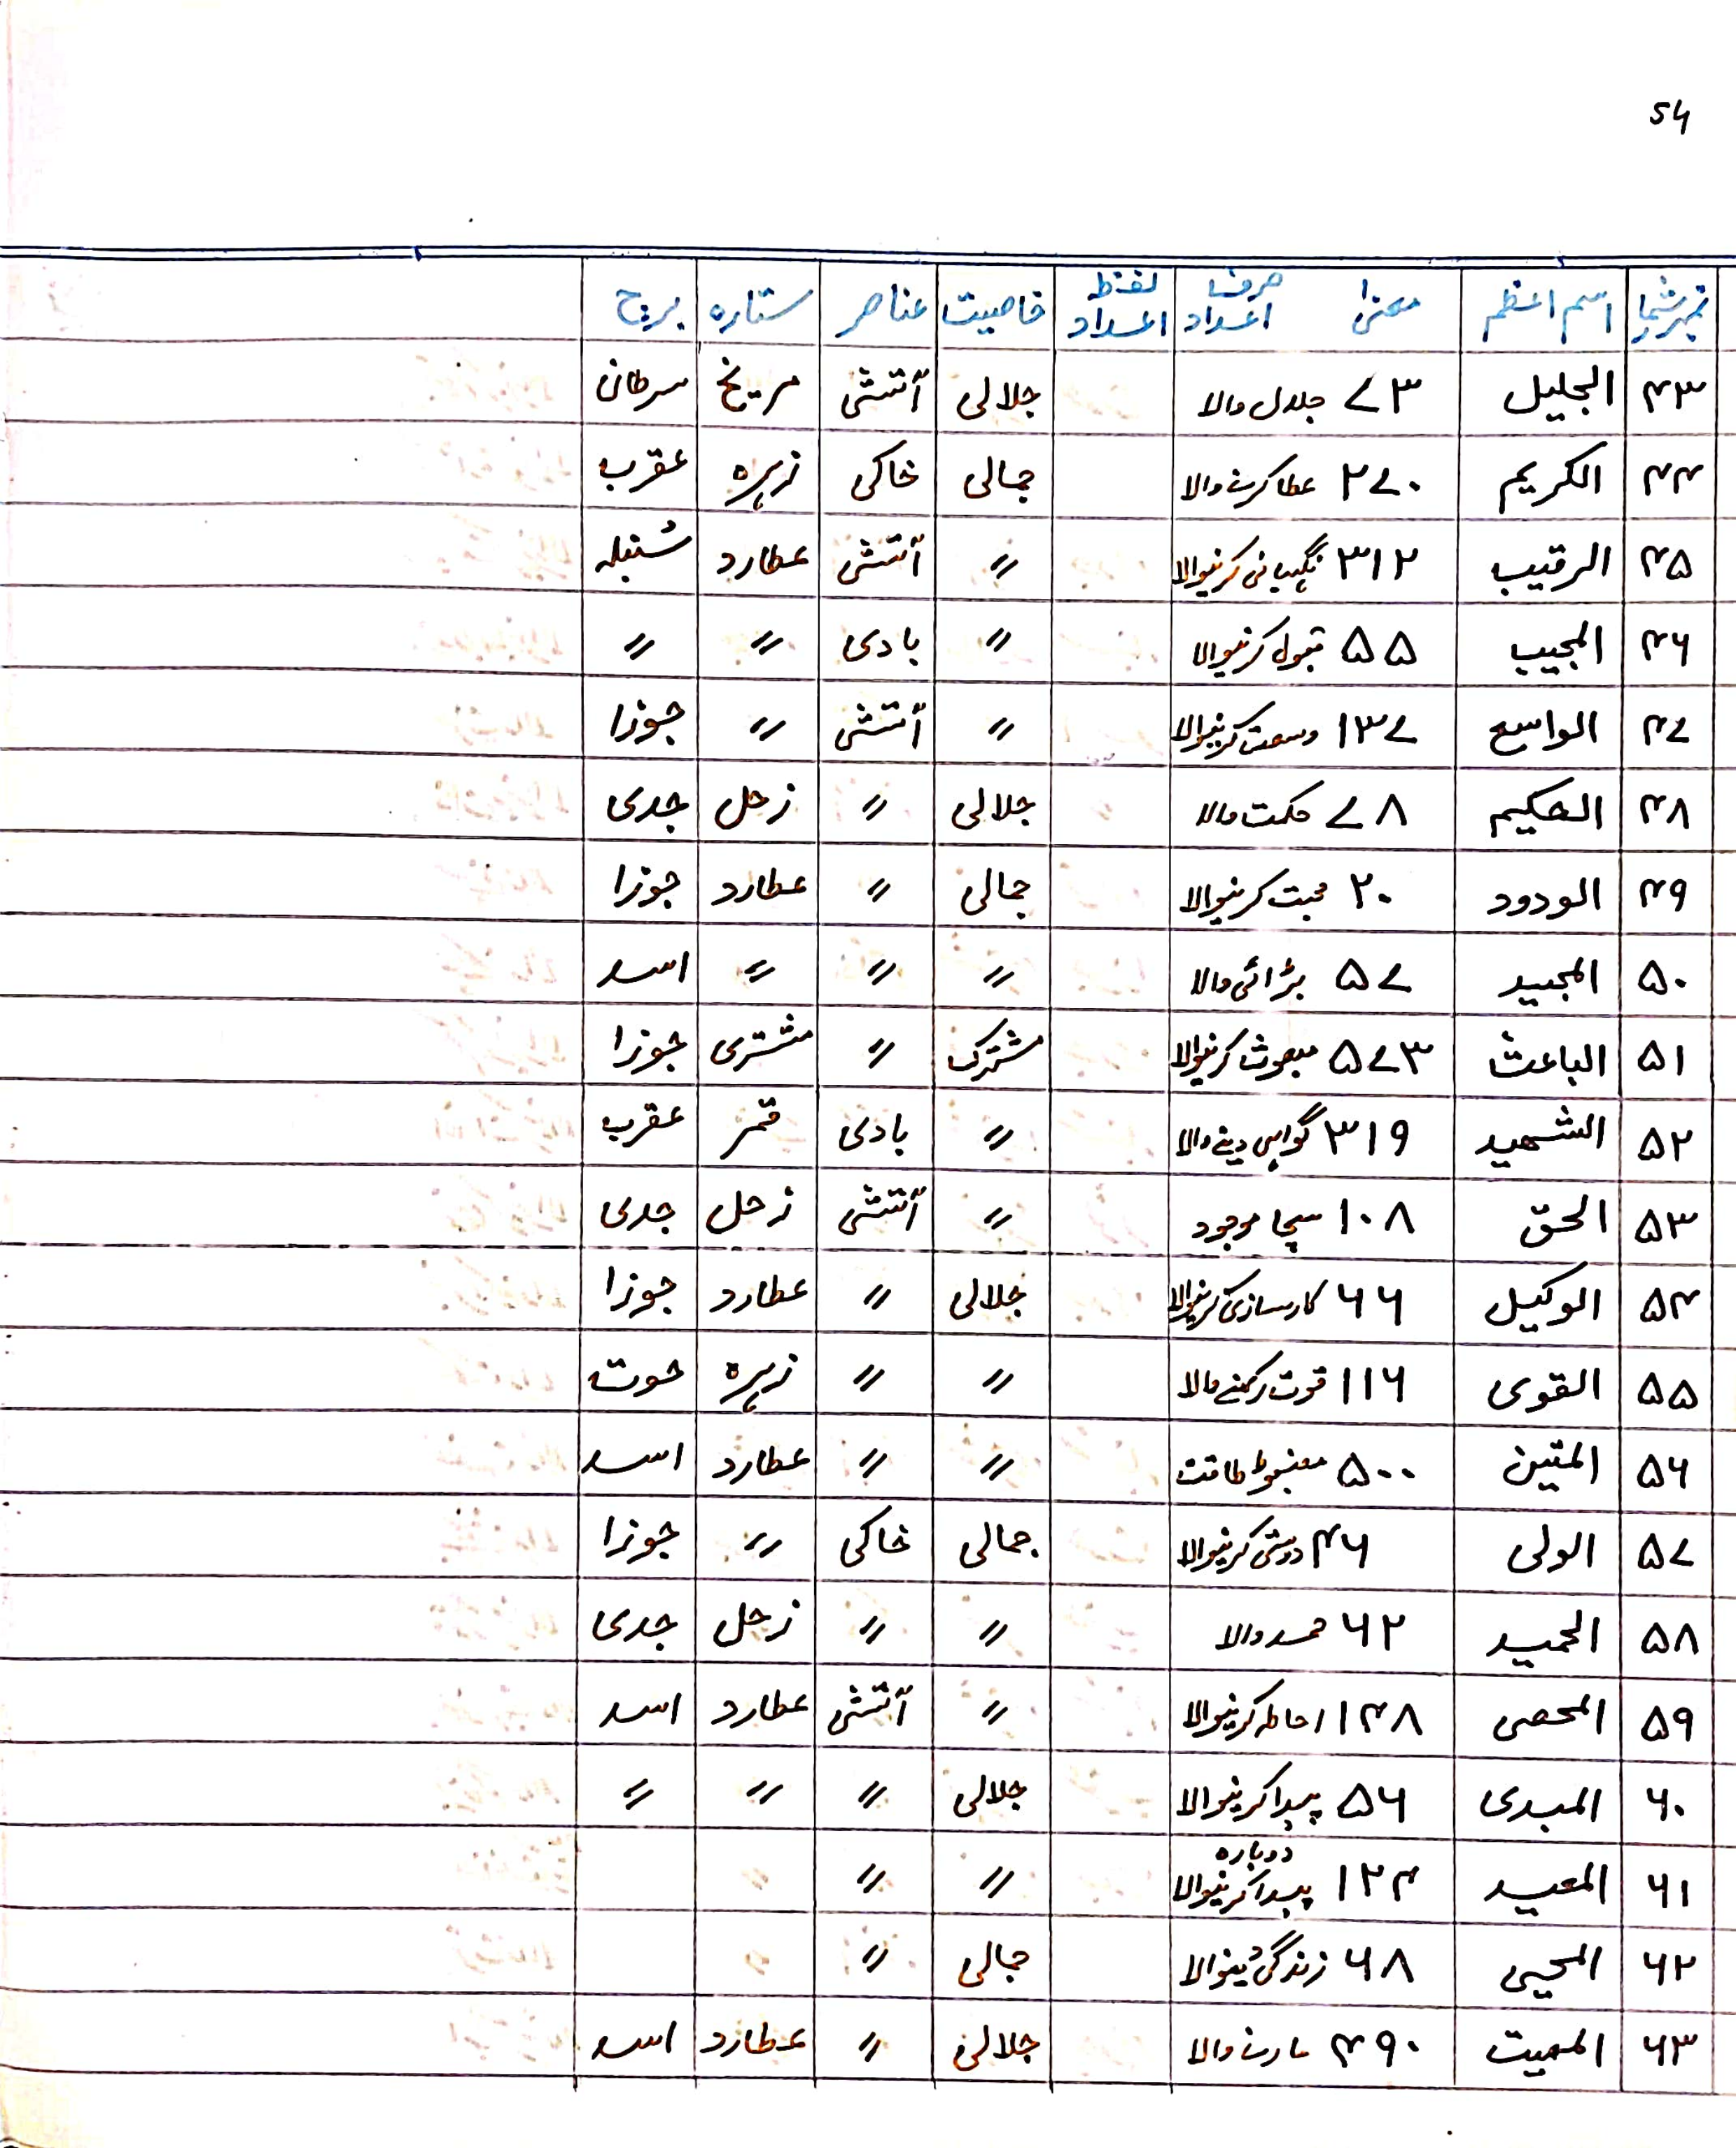 54
نمبر شمار اسم اعظم معنی حرف اعداد لفظ اعداد خاصیت عناصر ستارہ برج
۴۳ الجلیل ۷۳ جلال والا جلالی آتشی مریخ سرطان
۴۴ الکریم ۲۷۰ عطا کرنے والا جمالی خاکی زہرہ عقرب
۴۵ الرقیب ۳۱۲ نگہبانی کرنیوالا 〃 آتشی عطارد سُنبلہ
۴۶ المجیب ۵۵ قبول کرنیوالا 〃 بادی 〃 〃
۴۷ الواسع ۱۳۷ وسعت کرنیوالا 〃 آتشی 〃 جوزا
۴۸ الحکیم ۷۸ حکمت والا جلالی 〃 زحل جدی
۴۹ الودود ۲۰ محبت کرنیوالا جمالی 〃 عطارد جوزا
۵۰ المجید ۵۷ بڑائی والا 〃 〃 〃 اسد
۵۱ الباعث ۵۷۳ مبعوث کرنیوالا مشترک 〃 مشتری جوزا
۵۲ الشھید ۳۱۹ گواہی دینے والا 〃 بادی قمر عقرب
۵۳ الحق ۱۰۸ سچا موجود 〃 آتشی زحل جدی
۵۴ الوکیل ۶۶ کارسازی کرنیوالا جلالی 〃 عطارد جوزا
۵۵ القوی ۱۱۶ قوت رکھنے والا 〃 〃 زہرہ حوت
۵۶ المتین ۵۰۰ مضبوط طاقت 〃 〃 عطارد اسد
۵۷ الولی ۴۶ دوستی کرنیوالا جمالی خاکی 〃 جوزا
۵۸ الحمید ۶۲ حمد والا 〃 〃 زحل جدی
۵۹ المحصی ۱۴۸ احاطہ کرنیوالا 〃 آتشی عطارد اسد
۶۰ المبدی ۵۶ پیدا کرنیوالا جلالی 〃 〃 〃
۶۱ المعید ۱۲۴ دوبارہ پیدا کرنیوالا 〃 〃
۶۲ المحیی ۶۸ زندگی دینوالا جمالی 〃
۶۳ الممیت ۴۹۰ مارنے والا جلالی 〃 عطارد اسد